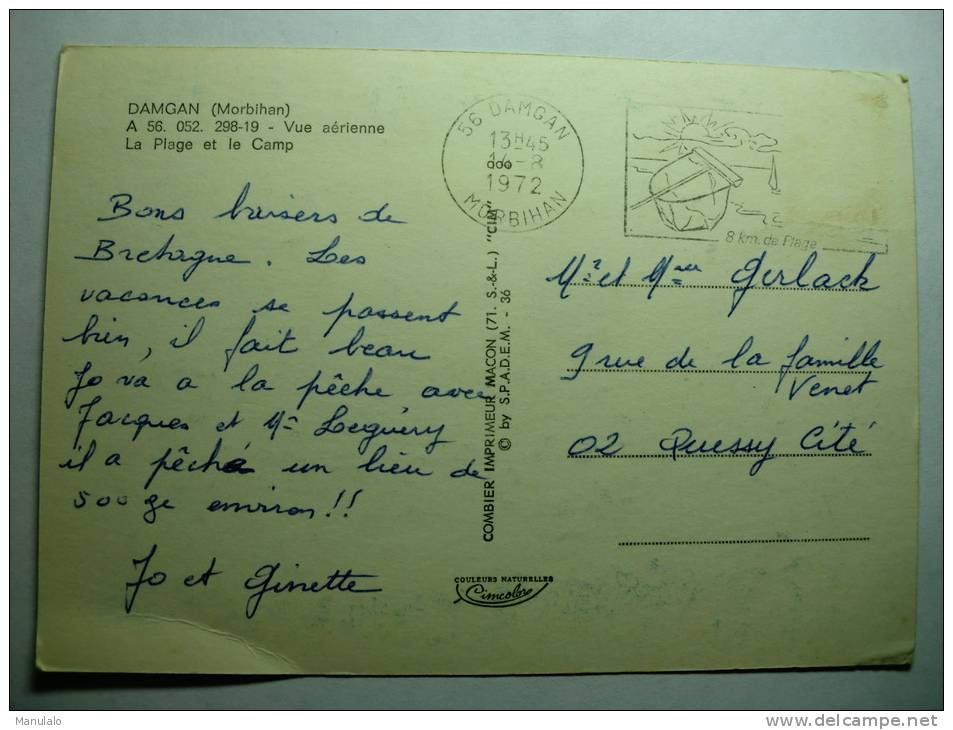 DAMGAN (Morbihan)
A 56. 052. 298-19 - Vue aérienne
La Plage et le Camp
56 DAMGAN
13H45
14-8
1972
MORBIHAN
8 km. de Plage
Bons baisers de
Bretagne. Les
vacances se passent
bien, il fait beau
Jo va a la pêche avec
Jacques et Mr Leguéry
il a pêché un lieu de
500 ge environ!!
Jo et Ginette
COMBIER IMPRIMEUR MACON (71. S.-&-L.) "CIM"
© by S.P.A.D.E.M. - 36
Mr et Mme Gerlack
9 rue de la famille
Venet
02 Quessy Cité
COULEURS NATURELLES
Cimcolor
Manulalo
www.delcampe.net